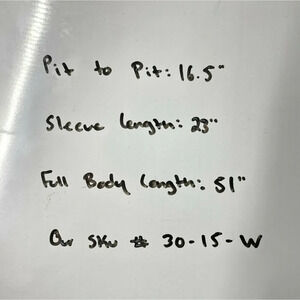 Pit to Pit: 16.5"
Sleeve Length: 23"
Full Body Length: 51"
Our SKU # 30-15-W